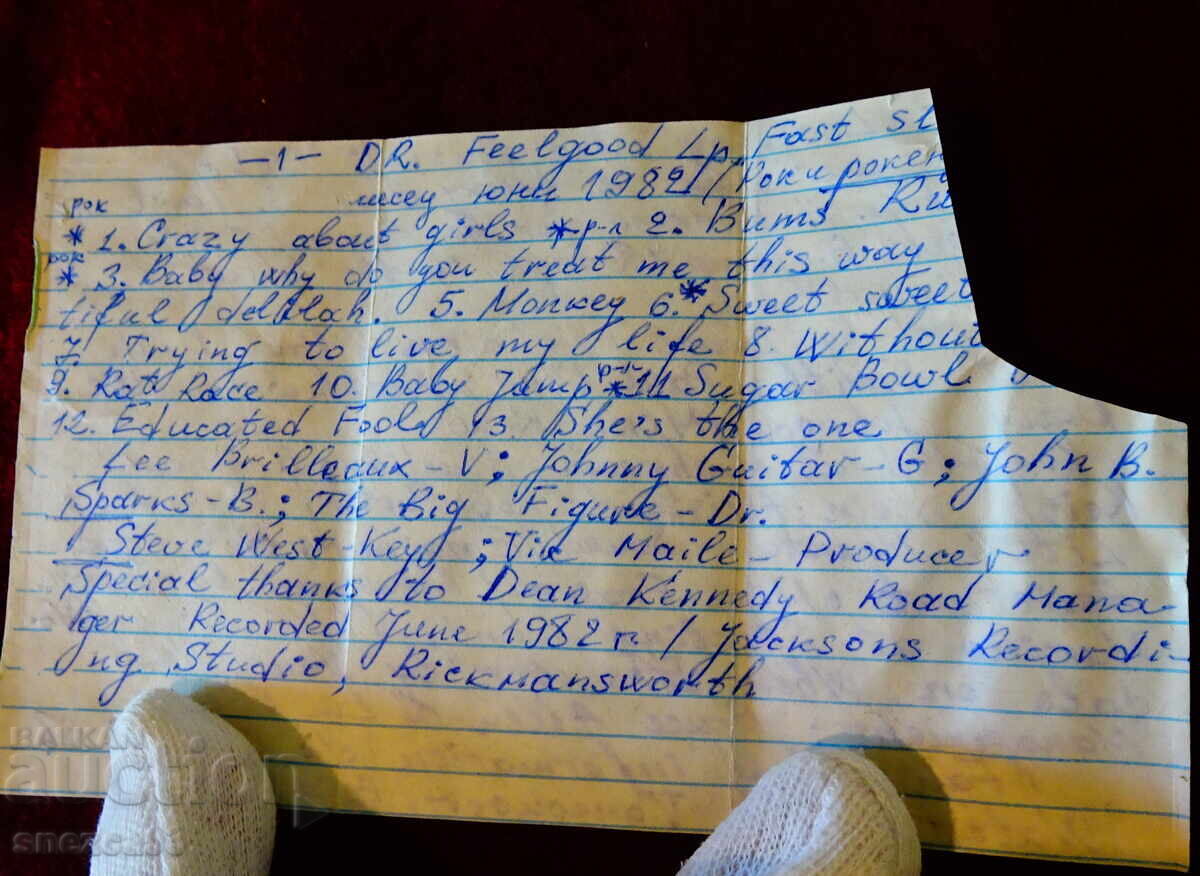 -1- DR. Feelgood Lp. Fast
месец юни 1982 / Рок и
рок
* 1. Crazy about girls * р-л 2. Bums
рок
* 3. Baby why do you treat me this way
tiful delilah. 5. Monkey 6. * Sweet sweet
7. Trying to live my life 8. Without
р-л
9. Rat Race 10. Baby Jump * 11 Sugar Bowl
12. Educated Fool 13. She's the one
Lee Brilleaux - V; Johnny Guitar - G; John B.
Sparks - B.; The Big Figure - Dr.
Steve West - Key; Vic Maile - Producer
Special thanks to Dean Kennedy Road Mana-
ger Recorded June 1982 г. / Jacksons Recordi-
ng Studio, Rickmansworth
BALKAN
auction